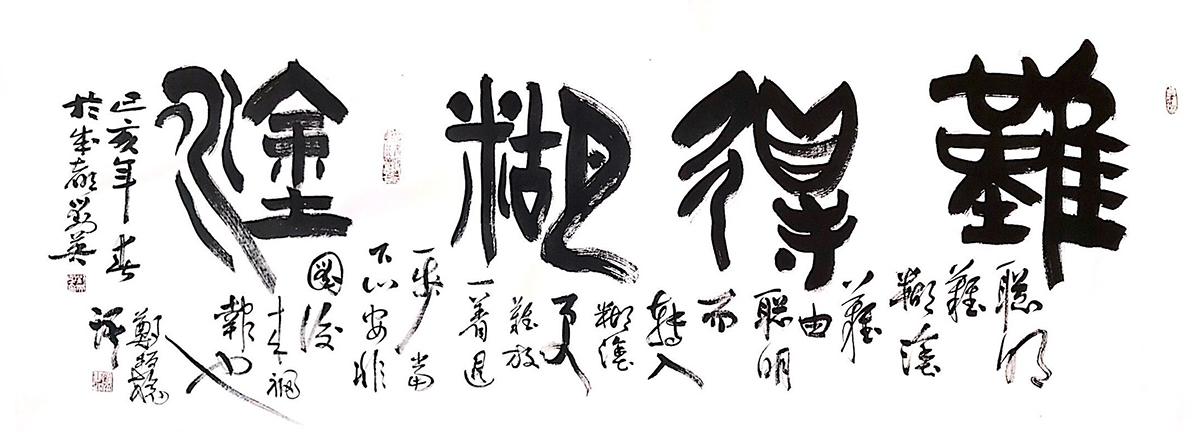 難得糊塗
聰明
難
糊塗
難
由
聰明
而
轉入
糊塗
更
難放
一著退
一步當
下心安非
圖後
来福
報也
鄭板橋
己亥年春
於成都劉英